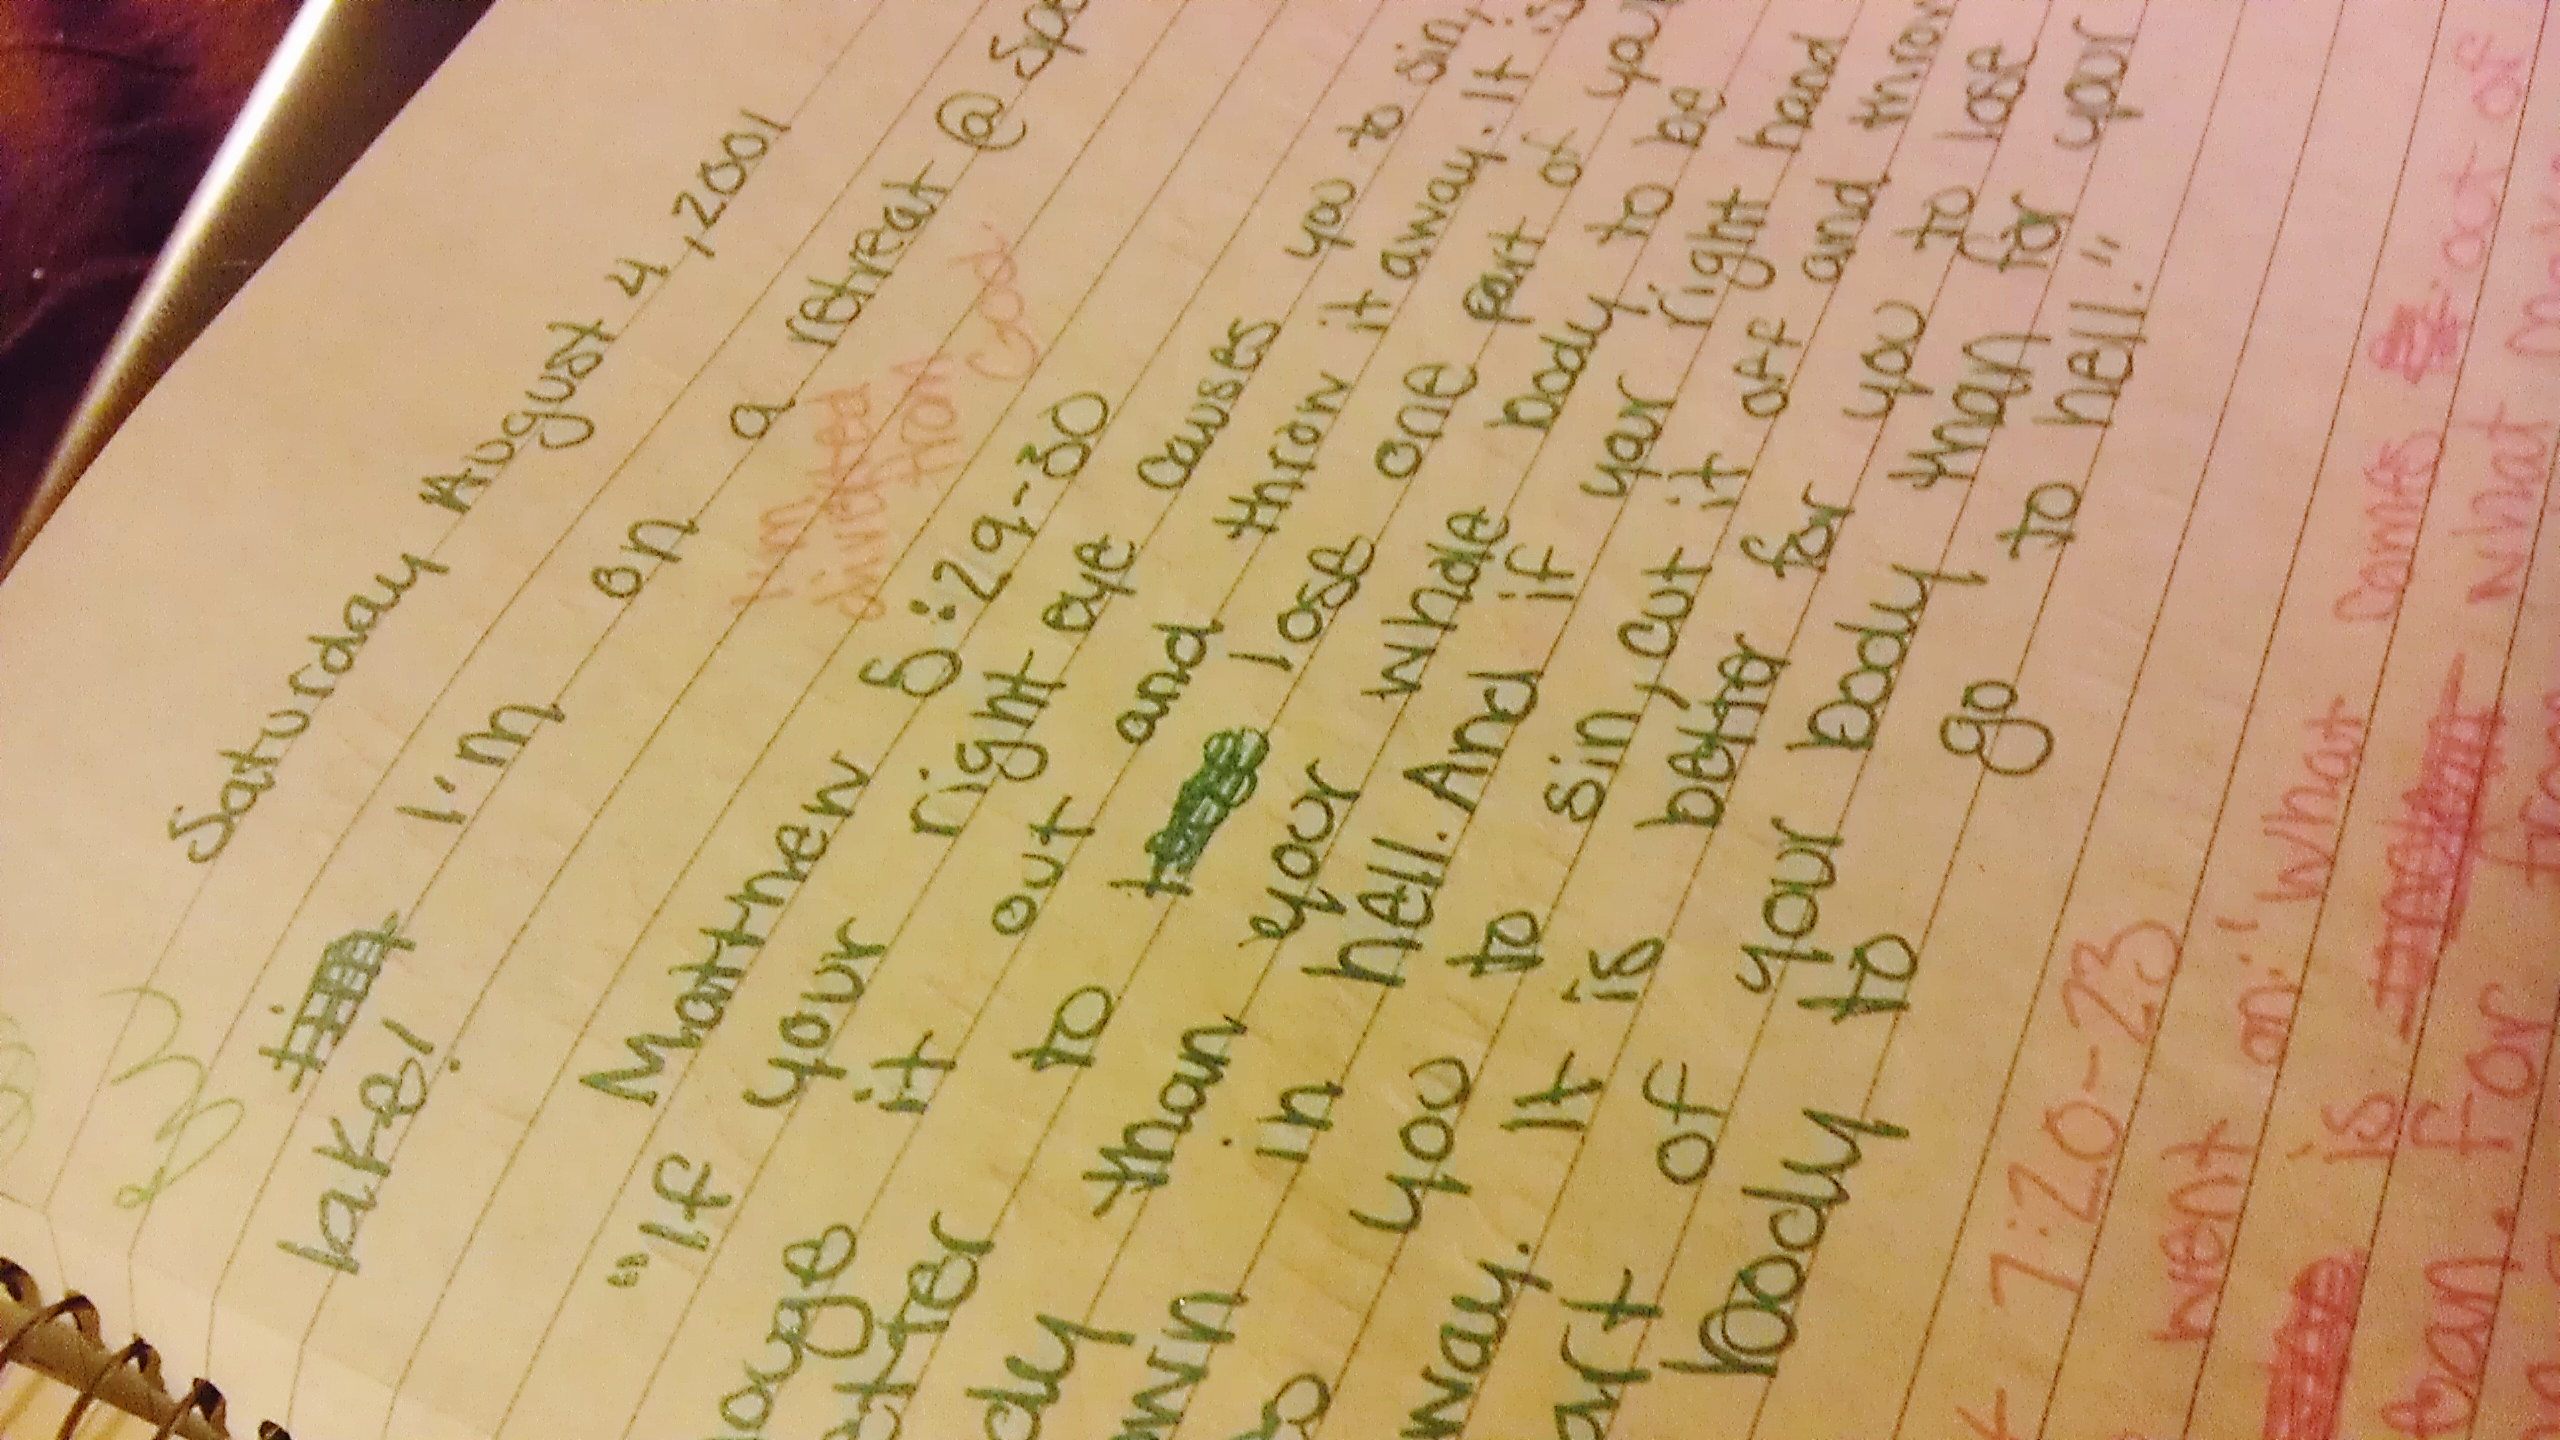 Saturday August 4, 2001
I'm on a retreat @ Spo
lake!
I'm
God.
Matthew 5:29-30
"If your right eye causes you to sin,
gouge it out and throw it away. It is
better to lose one part of you
body than your whole body to be
in hell. And if your right hand
you to sin, cut it off and throw
way. It is better for you to lose
art of your body than for your
body to go to hell."
7:20-23
went on: "What coms out of
is What
ban. For from